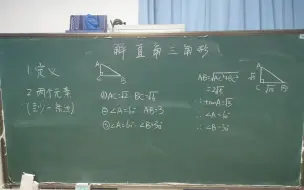 解直角三角形
1.定义
2.两个元素
(至少一条边)
A
C
B
①AC=√2 BC=√6
②∠A=60° AB=3
③∠A=60° ∠B=30°
AB=√AC²+BC²
=2√2
∴tanA=√3
∴∠A=60°
∴∠B=30°
A
C
B
√6